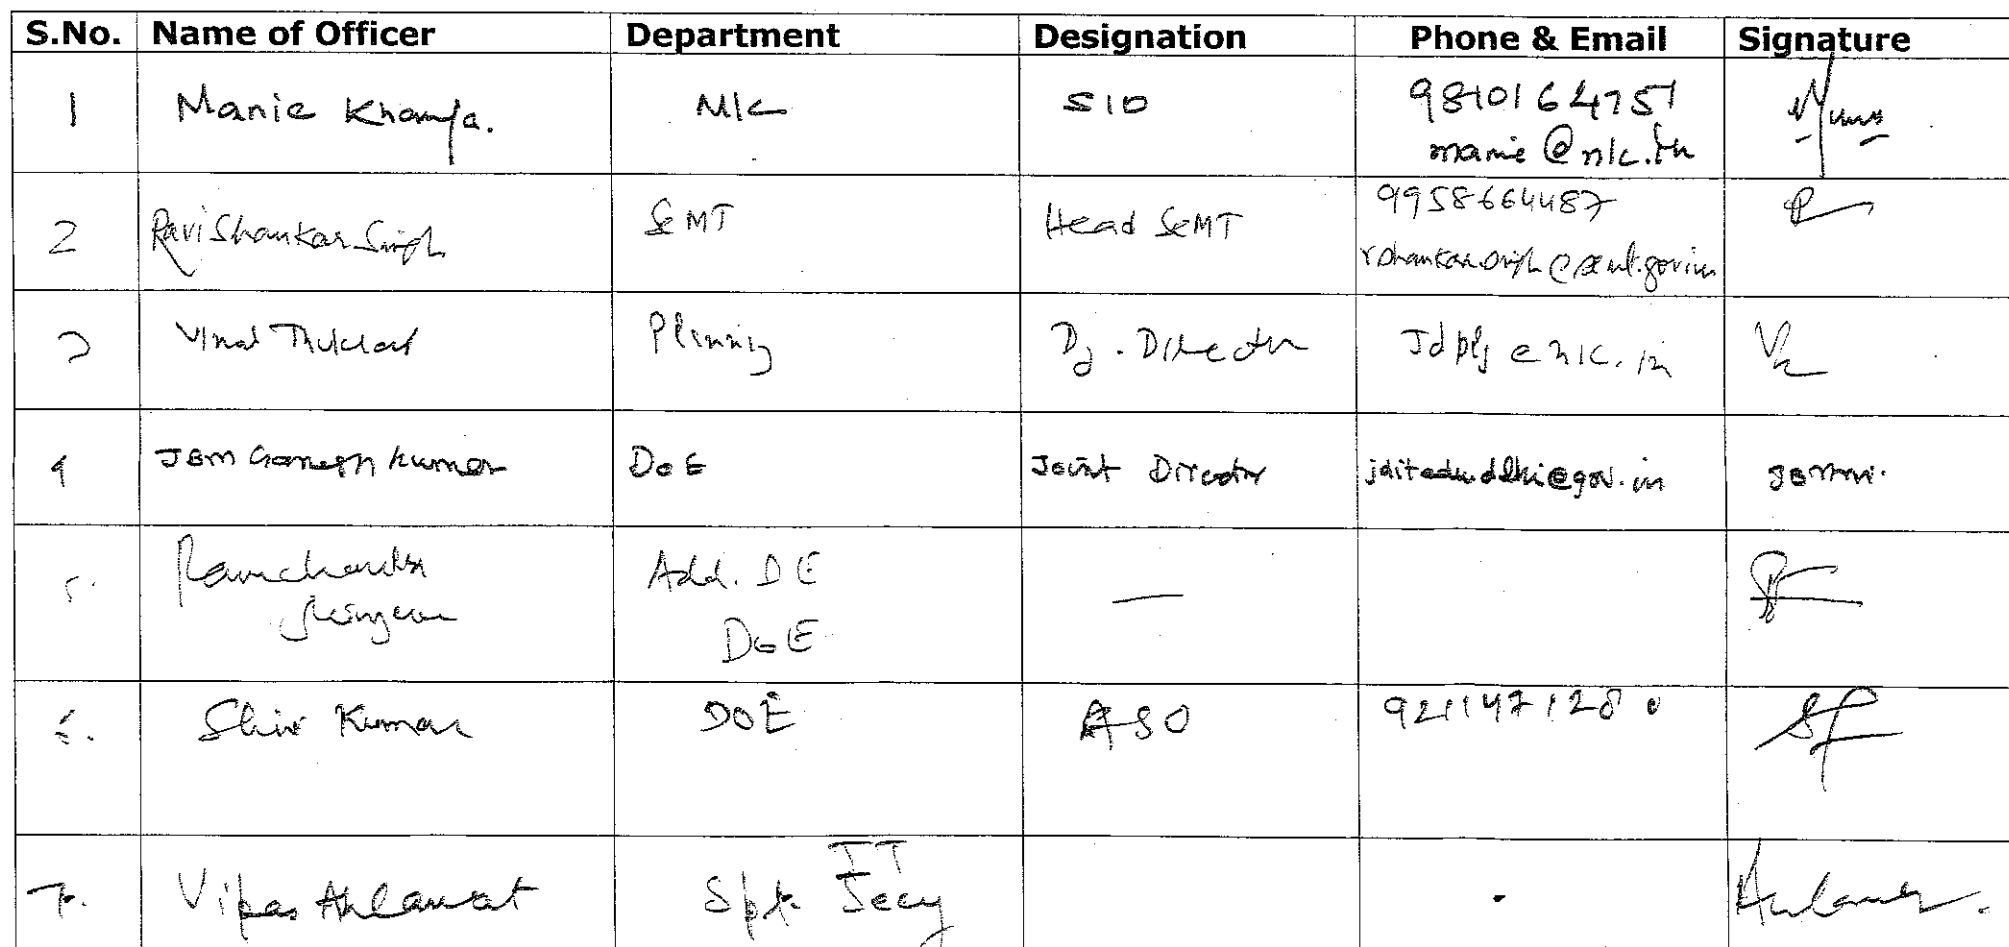 S.No. Name of Officer Department Designation Phone & Email Signature
1 Manie NIC SIO 9810164757
manie@nic.in
2 Ravi Shankar Singh SeMT Head SeMT 9958664487
rshankar.singh@semt.gov.in
3 Dy. Director Jdplg@nic.in
4 JBM Ganesh Kumar DoE Joint Director jditedudelhi@gov.in
5. Ramchandra Add. DE —
Shingare DoE
6. Shiv Kumar DOE ASO 9211471280
IT
7. Vikas Ahlawat